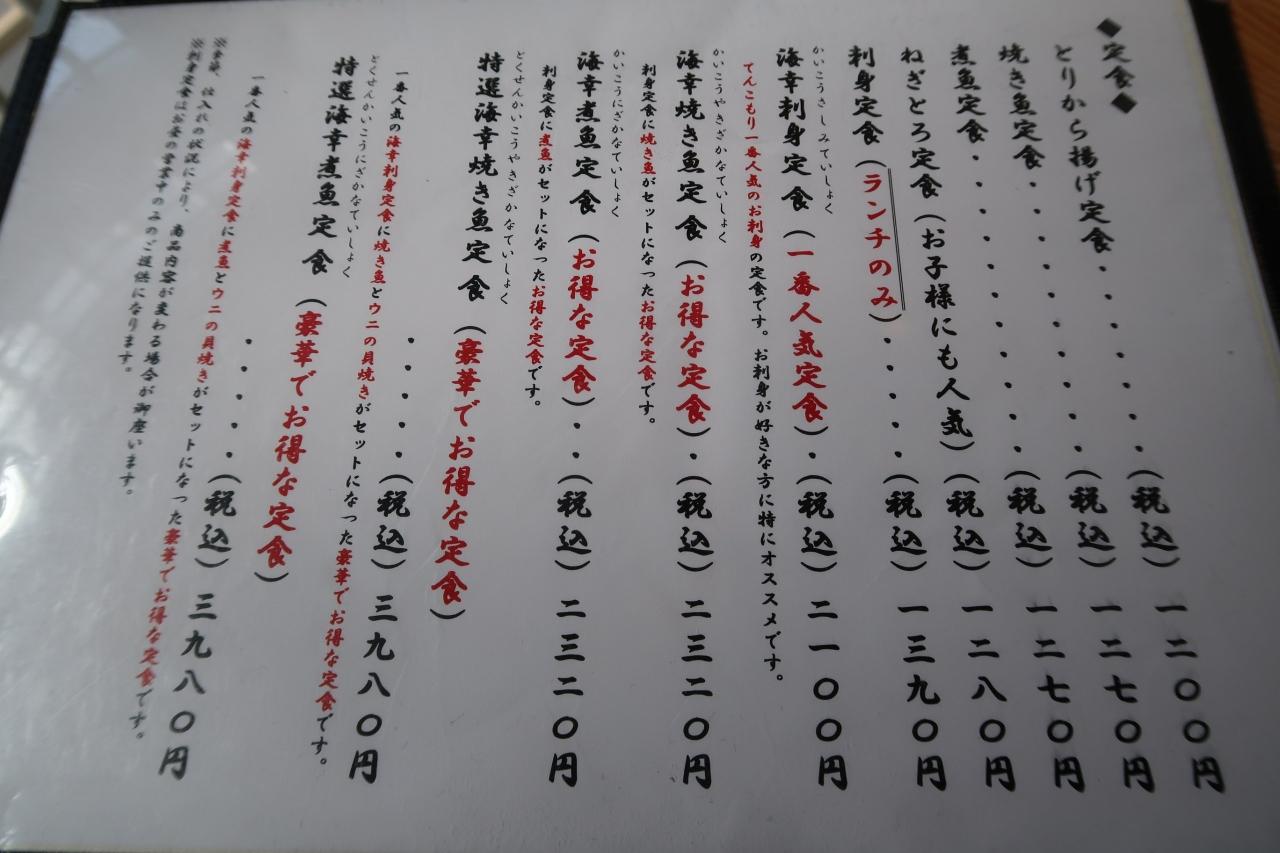 ◆定食◆
とりから揚げ定食・・・・・・・(税込)一二〇〇円
焼き魚定食・・・・・・・・・・(税込)一二七〇円
煮魚定食・・・・・・・・・・・(税込)一二七〇円
ねぎとろ定食(お子様にも人気)(税込)一二八〇円
刺身定食(ランチのみ)・・・・・(税込)一三九〇円
かいこうさしみていしょく
海幸刺身定食(一番人気定食)・(税込)二一〇〇円
てんこもり一番人気のお刺身の定食です。お刺身が好きな方に特にオススメです。
かいこうやきざかなていしょく
海幸焼き魚定食(お得な定食)・(税込)二三二〇円
刺身定食に焼き魚がセットになったお得な定食です。
かいこうにざかなていしょく
海幸煮魚定食(お得な定食)・・(税込)二三二〇円
刺身定食に煮魚がセットになったお得な定食です。
とくせんかいこうやきざかなていしょく
特選海幸焼き魚定食(豪華でお得な定食)
・・・・・(税込)三九八〇円
一番人気の海幸刺身定食に焼き魚とウニの貝焼きがセットになった豪華でお得な定食です。
とくせんかいこうにざかなていしょく
特選海幸煮魚定食(豪華でお得な定食)
・・・・・(税込)三九八〇円
一番人気の海幸刺身定食に煮魚とウニの貝焼きがセットになった豪華でお得な定食です。
※季節、仕入れの状況により、商品内容が変わる場合が御座います。
※刺身定食はお昼の営業中のみのご提供になります。